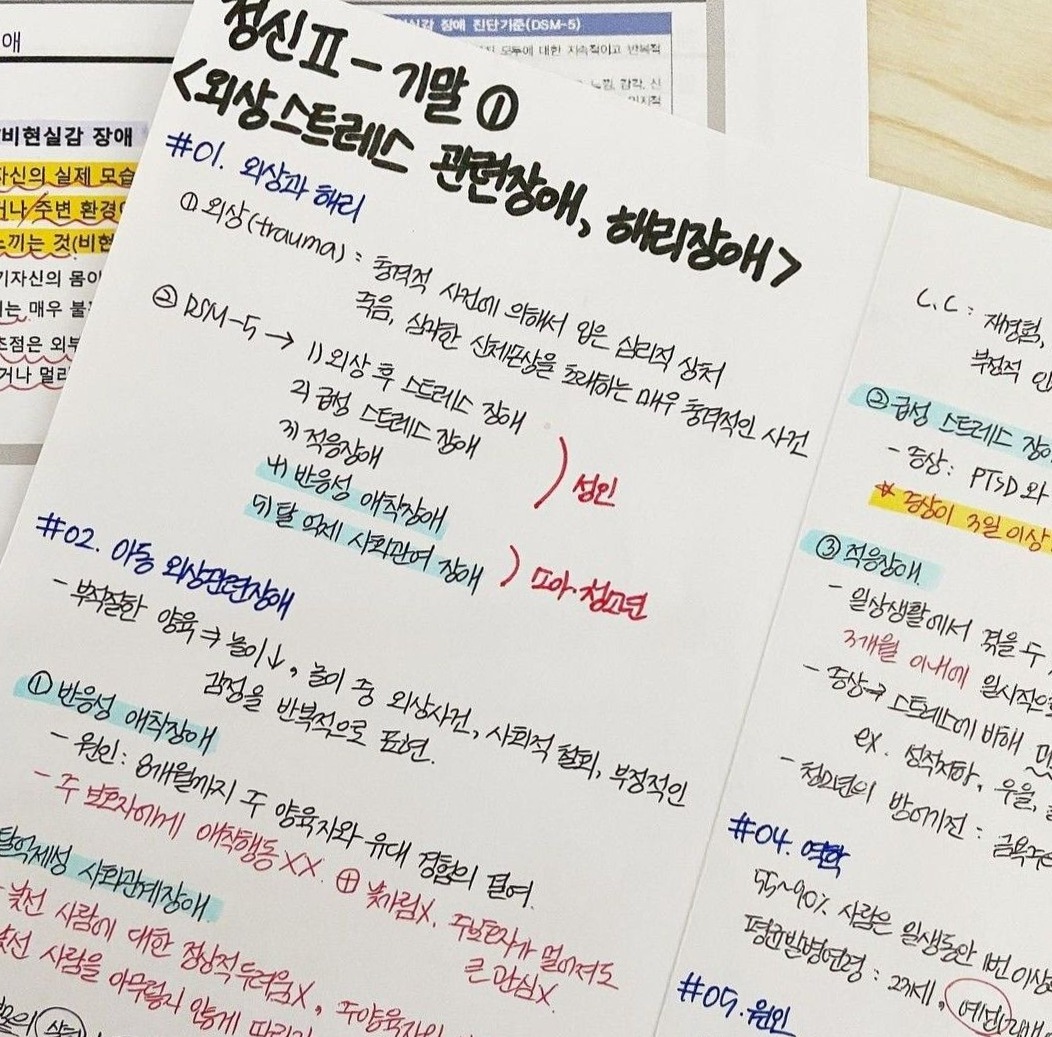 정신Ⅱ - 기말 ①
<외상스트레스 관련장애, 해리장애>
#01. 외상과 해리
① 외상(trauma) : 충격적 사건에 의해서 입은 심리적 상처
죽음, 심각한 신체손상을 초래하는 매우 충격적인 사건
② DSM-5 → 1) 외상 후 스트레스 장애
2) 급성 스트레스 장애
3) 적응장애
) 성인
4) 반응성 애착장애
5) 탈 억제 사회관여 장애
) 소아·청소년
#02. 아동 외상관련장애
- 부적절한 양육 ⇒ 놀이↓, 놀이 중 외상사건, 사회적 철회, 부정적인
감정을 반복적으로 표현.
① 반응성 애착장애
- 원인: 8개월까지 주 양육자와 유대 경험의 결여.
- 주 보호자에게 애착행동 XX. ⊕ 낯가림X. 주보호자가 멀어져도
큰 관심X
탈억제성 사회관계장애
- 낯선 사람에 대한 정상적 두려움X, 주양육자와
낯선 사람을 아무렇지 않게 따라가
C.C : 재경험,
부정적 인
② 급성 스트레스 장애
- 증상: PTSD와
* 증상이 3일 이상
③ 적응장애
- 일상생활에서 겪을 수
3개월 이내에 일시적으로
- 증상→ 스트레스에 비해
ex. 성적저하, 우울,
- 청소년의 방어기전 : 금욕주의
#04. 역학
55~90% 사람은 일생동안 1번 이상
평균발병연령 : 23세,
#05. 원인
애
현실감 장애 진단기준(DSM-5)
모두에 대한 지속적이고 반복적
느낌, 감각, 신
비현실감 장애
자신의 실제 모습
거나 주변 환경
느끼는 것(비현
기자신의 몸이
는 매우 불
초점은 외부
거나 멀리